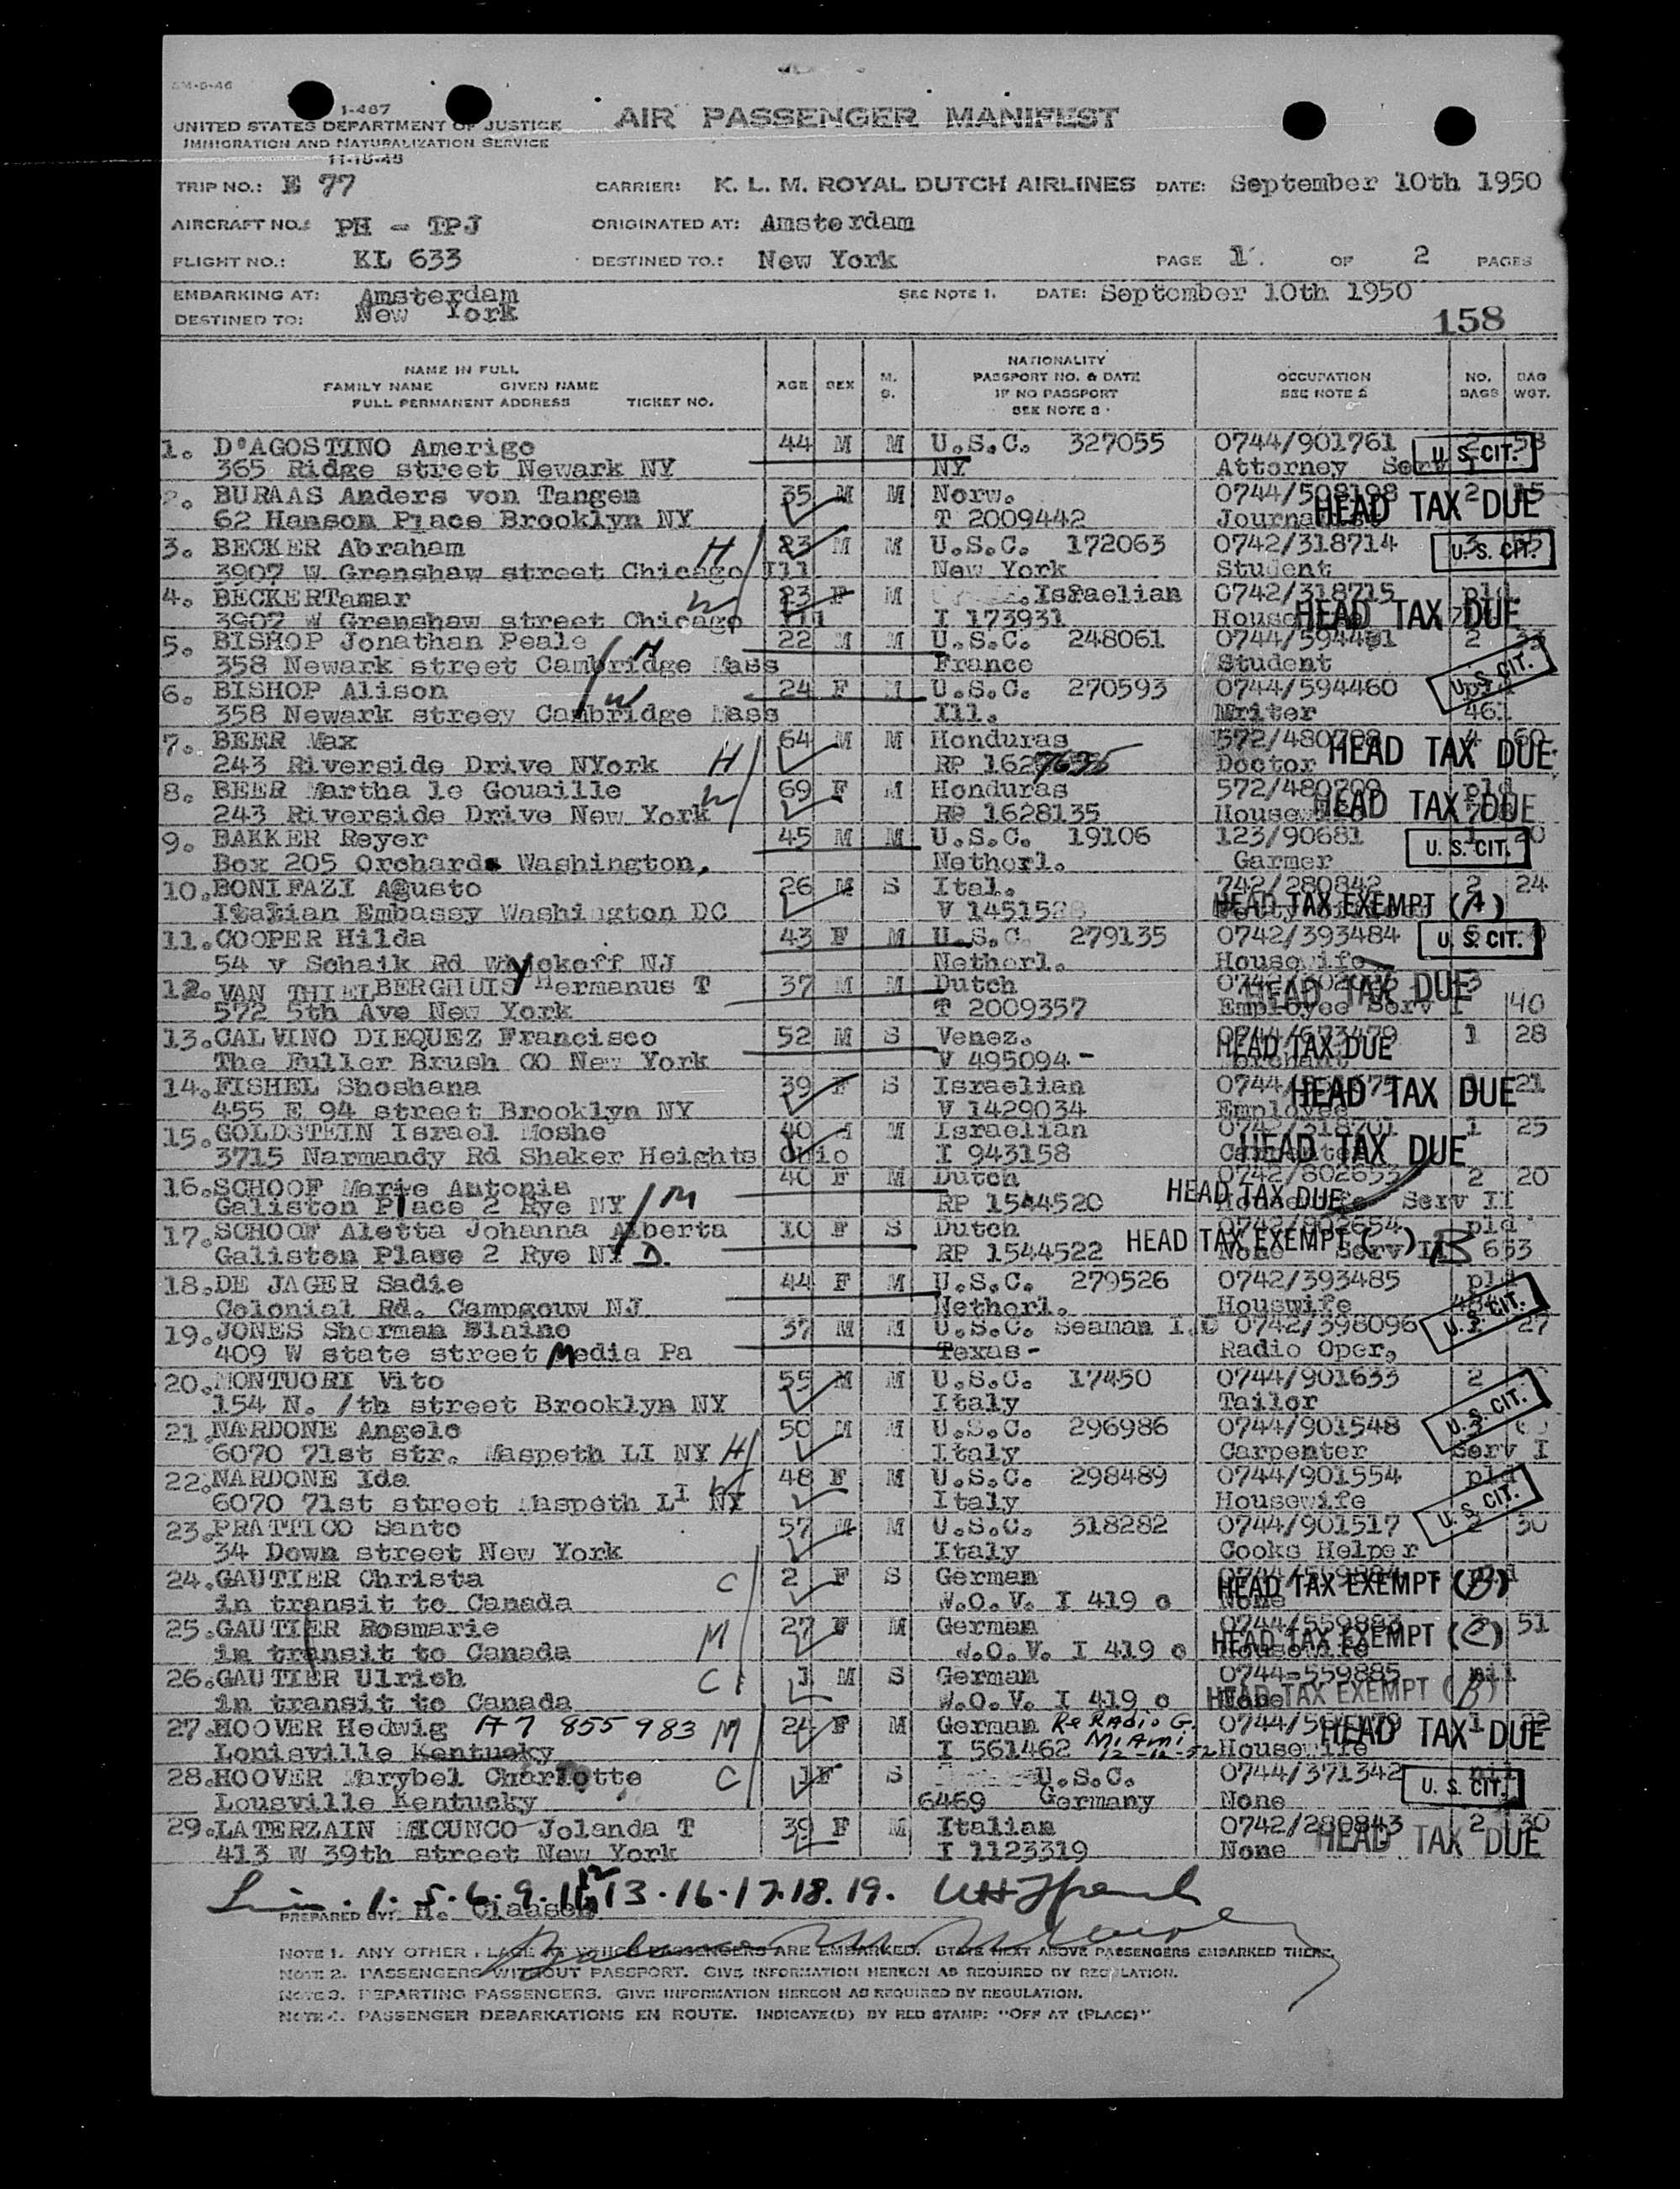 1-467
UNITED STATES DEPARTMENT OF JUSTICE
IMMIGRATION AND NATURALIZATION SERVICE
11-18-48
AIR PASSENGER MANIFEST
TRIP NO.: E 77
CARRIER: K. L. M. ROYAL DUTCH AIRLINES DATE: September 10th 1950
AIRCRAFT NO.: PH - TPJ
ORIGINATED AT: Amsterdam
FLIGHT NO.: KL 633
DESTINED TO.: New York
PAGE 1 OF 2 PAGES
EMBARKING AT: Amsterdam
SEE NOTE 1. DATE: September 10th 1950
DESTINED TO: New York
158
NAME IN FULL
FAMILY NAME GIVEN NAME
FULL PERMANENT ADDRESS TICKET NO.
AGE SEX M. S.
NATIONALITY
PASSPORT NO. & DATE
IF NO PASSPORT
SEE NOTE 3
OCCUPATION
SEE NOTE 2
NO. BAGS
BAG WGT.
1. D'AGOSTINO Amerigo 44 M M U.S.C. 327055 0744/901761 U. S. CIT.
365 Ridge street Newark NY NY Attorney
2. BURAAS Anders von Tangen 35 M M Norw. 2 HEAD TAX DUE
62 Hanson Place Brooklyn NY T 2009442
3. BECKER Abraham H 23 M M U.S.C. 172063 0742/318714 U. S. CIT.
3907 W Grenshaw street Chicago Ill New York Student
4. BECKERTamar W 23 F M Israelian 0742/318715 pld
3907 W Grenshaw street Chicago Ill I 173931 HEAD TAX DUE
5. BISHOP Jonathan Peale H 22 M M U.S.C. 248061 2 33
358 Newark street Cambridge Mass France Student U. S. CIT.
6. BISHOP Alison W 24 F M U.S.C. 270593 0744/594460
358 Newark streey Cambridge Mass Ill. Writer
7. BEER Max 64 M M Honduras HEAD TAX DUE 60
243 Riverside Drive NYork H RP Doctor
8. BEER Martha le Gouaille W 69 F M Honduras pld
243 Riverside Drive New York RP 1628135 HEAD TAX DUE
9. BAKKER Reyer 45 M M U.S.C. 19106 123/90681 U. S. CIT.
Box 205 Orchards Washington, Netherl. Garmer
10. BONIFAZI Agusto 26 M S Ital. 742/280842 2 24
Italian Embassy Washington DC V HEAD TAX EXEMPT (A)
11. COOPER Hilda 43 F M U.S.C. 279135 0742/393484 U. S. CIT.
54 v Schaik Rd Wyckoff NJ Netherl. Housewife
12. VAN THIEL BERGHUIS Hermanus T 37 M M Dutch HEAD TAX DUE
572 5th Ave New York T 2009357 Employee Serv I 40
13. CALVINO DIEQUEZ Francisco 52 M S Venez. 1 28
The Fuller Brush CO New York V 495094 - HEAD TAX DUE
14. FISHEL Shoshana 39 F S Israelian HEAD TAX DUE 21
455 E 94 street Brooklyn NY V 1429034 Employee
15. GOLDSTEIN Israel Moshe 40 M M Israelian 1 25
3715 Narmandy Rd Shaker Heights Ohio I 943158 HEAD TAX DUE
16. SCHOOF Marie Antonia M 40 F M Dutch 0742/802653 2 20
Galiston Place 2 Rye NY RP 1544520 HEAD TAX DUE Serv II
17. SCHOOF Aletta Johanna Alberta 10 F S Dutch 0742/802654 pld
Galiston Plase 2 Rye NY D. RP 1544522 HEAD TAX EXEMPT ( ) B None Serv II 653
18. DE JAGER Sadie 44 F M U.S.C. 279526 0742/393485 pld
Colonial Rd. Campgouw NJ Netherl. Houswife U. S. CIT.
19. JONES Sherman Blaine 37 M M U.S.C. Seaman I.C 0742/398096 27
409 W state street Media Pa Texas - Radio Oper.
20. MONTUORI Vito 55 M M U.S.C. 17450 0744/901633 2
154 N. /th street Brooklyn NY Italy Tailor U. S. CIT.
21. NARDONE Angelo 50 M M U.S.C. 296986 0744/901548
6070 71st str. Maspeth LI NY H Italy Carpenter Serv I
22. NARDONE Ida W 48 F M U.S.C. 298489 0744/901554 pld
6070 71st street Maspeth LI NY Italy Housewife U. S. CIT.
23. PRATTICO Santo 57 M M U.S.C. 318282 0744/901517 2 30
34 Down street New York Italy Cooks Helper
24. GAUTIER Christa C 2 F S German HEAD TAX EXEMPT (B)
in transit to Canada W.O.V. I 419 o None
25. GAUTIER Rosmarie M 27 F M German 0744/559883 51
in transit to Canada W.O.V. I 419 o HEAD TAX EXEMPT (C) Housewife
26. GAUTIER Ulrich C 1 M S German 0744-559885 nil
in transit to Canada W.O.V. I 419 o None HEAD TAX EXEMPT (B)
27. HOOVER Hedwig A7 855983 M 24 F M German Re Radio G. HEAD TAX DUE
Lonisville Kentucky I 561462 Miami 12-12-52 Housewife
28. HOOVER Marybel Charlotte C 1 F S U.S.C. 0744/371342 nil
Lousville Kentucky 6469 Germany None U. S. CIT.
29. LATERZAIN MICUNCO Jolanda T 39 F M Italian 0742/280843 2 30
413 W 39th street New York I 1123319 None HEAD TAX DUE
1. 5. 6. 9. 11 12 13. 16. 17. 18. 19.
PREPARED BY: H. Claasen
NOTE 1. ANY OTHER PLACE AT WHICH PASSENGERS ARE EMBARKED. STATE NEXT ABOVE PASSENGERS EMBARKED THERE.
NOTE 2. PASSENGERS WITHOUT PASSPORT. GIVE INFORMATION HEREON AS REQUIRED BY REGULATION.
NOTE 3. DEPARTING PASSENGERS. GIVE INFORMATION HEREON AS REQUIRED BY REGULATION.
NOTE 4. PASSENGER DEBARKATIONS EN ROUTE. INDICATE(D) BY RED STAMP: "OFF AT (PLACE)"